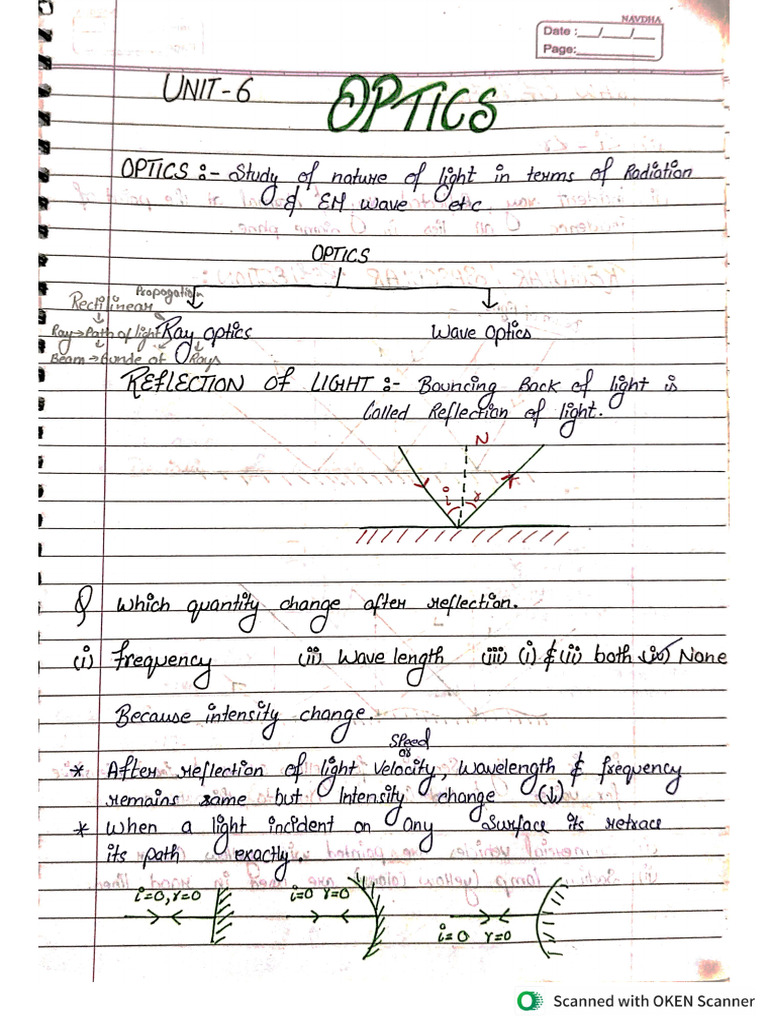 NAVDHA
Date :__/__/__
Page:
UNIT-6 OPTICS
OPTICS :- Study of nature of light in terms of Radiation
& EM wave etc
OPTICS
Propogation
Rectilinear
Ray → Path of light Ray optics Wave Optics
Beam → Bunde of Rays
REFLECTION OF LIGHT :- Bouncing Back of light is
Called Reflection of light.
N
i r
Q Which quantity change after reflection.
(i) frequency (ii) Wave length (iii) (i) & (ii) both (iv) None
Because intensity change.
Speed
or
* After reflection of light Velocity, Wavelength & frequency
remains same but Intensity change (↓)
* When a light incident on any Surface its retrace
its path exactly.
i=0, r=0 i=0 r=0
i=0 r=0
Scanned with OKEN Scanner